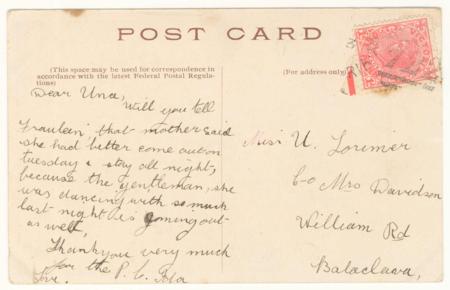 POST CARD
(This space may be used for correspondence in
accordance with the latest Federal Postal Regula-
tions)
(For address only)
Dear Una,
Will you tell
Fraulein that mother said
she had better come out on
tuesday & stay all night,
because the gentleman, she
was dancing with so much
last night is coming out
as well,
Thankyou very much
for the P. C.
Miss U. Lorimer
C/o Mrs Davidson
William Rd
Balaclava,